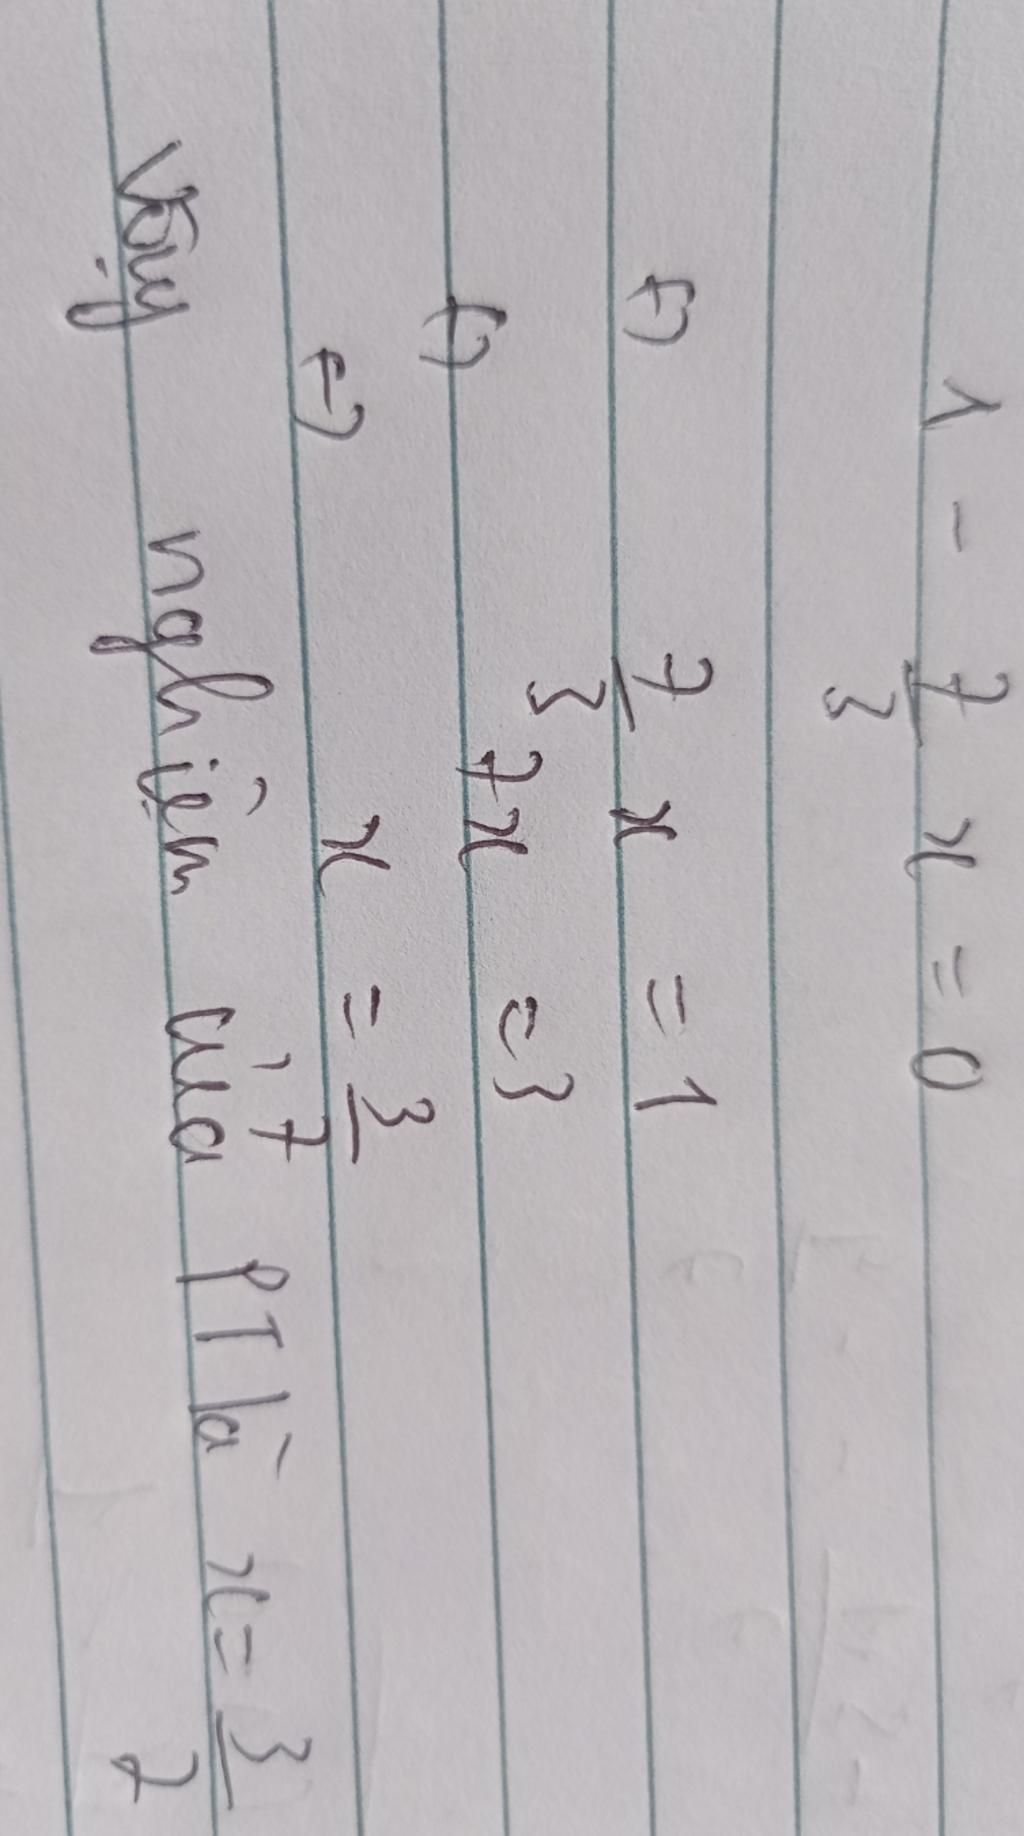 1 - 7/3 x = 0
↔ 7/3 x = 1
↔ 7x = 3
↔ x = 3/7
Vậy nghiệm của PT là x = 3/7